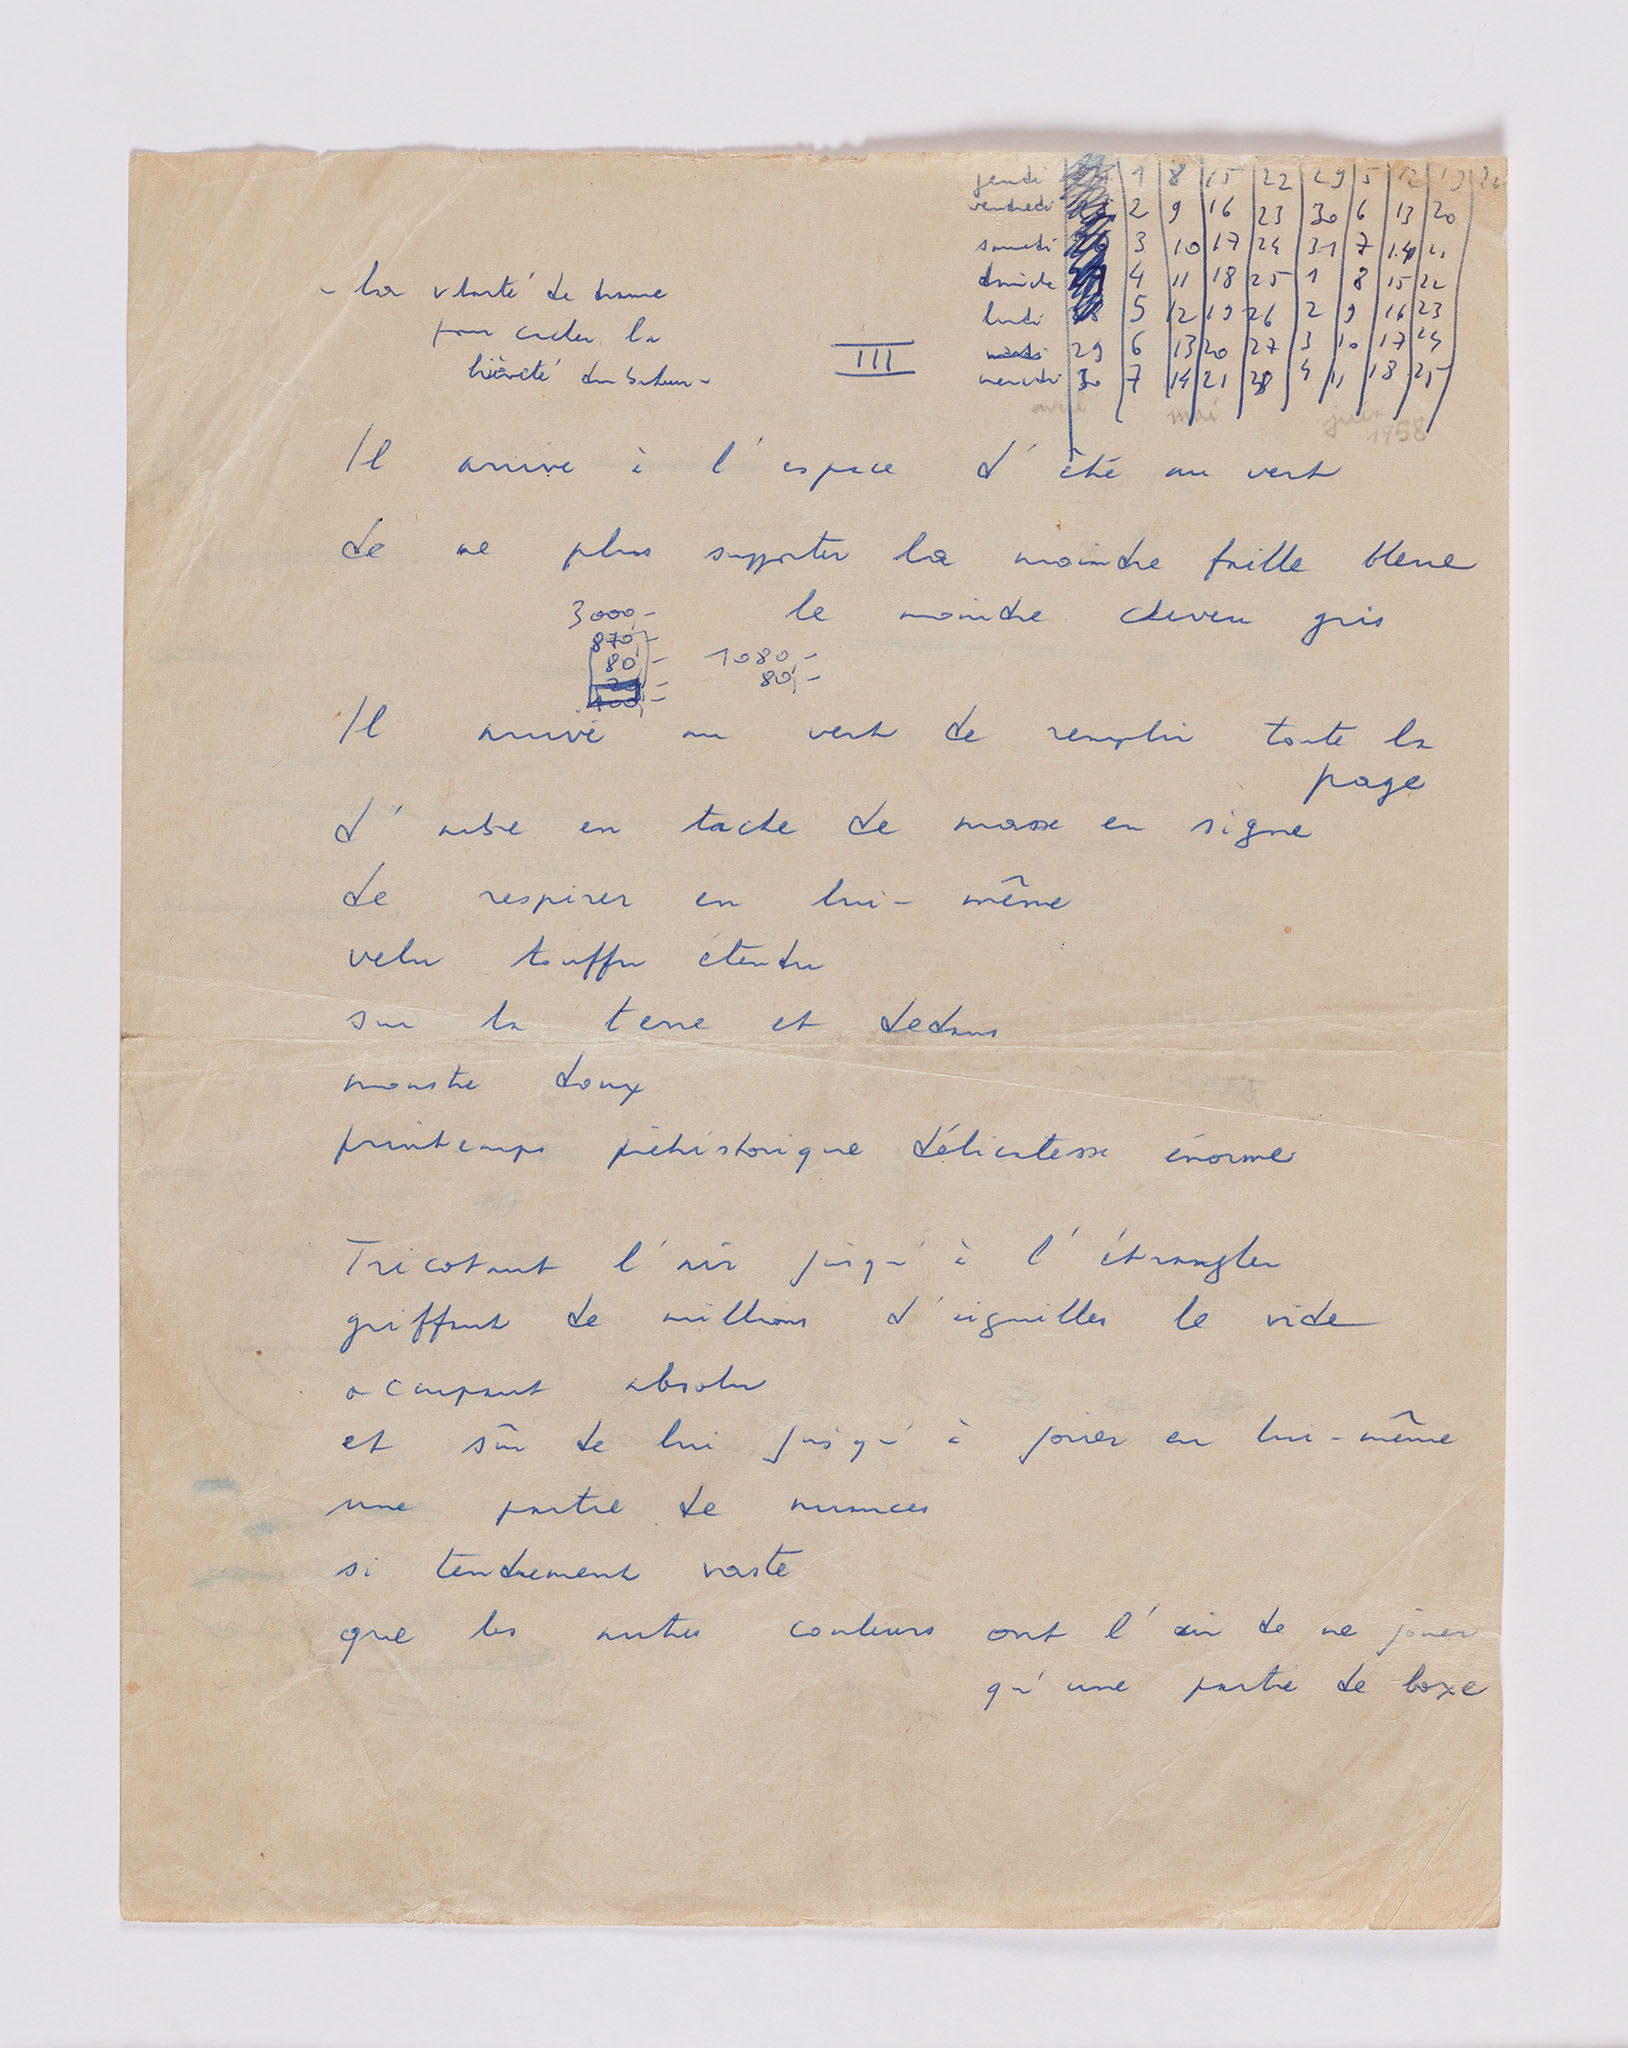 jeudi 1 8 15 22 29 5 12 19 26
vendredi 2 9 16 23 30 6 13 20
samedi 3 10 17 24 31 7 14 21
4 11 18 25 1 8 15 22
lundi 5 12 19 26 2 9 16 23
mardi 29 6 13 20 27 3 10 17 24
mercredi 30 7 14 21 28 4 11 18 25
avril mai juin
1958
- La de
pour la
du
III
Il arrive à l'espace d'été au vert
de ne plus supporter la moindre faille bleue
le moindre cheveu gris
3000,-
870,-
80,- 1080,-
20,- 80,-
100,-
Il arrive au vert de remplir toute la
page
d'arbre en tache de masse en signe
de respirer en lui-même
velu touffu étendu
sur la terre et dedans
monstre doux
printemps préhistorique délicatesse énorme
Tricotant l'air jusqu'à l'étrangler
griffant de millions d'aiguilles le vide
occupant absolu
et sûr de lui jusqu'à jouer en lui-même
une partie de nuances
si tendrement vaste
que les autres couleurs ont l'air de ne jouer
qu'une partie de boxe